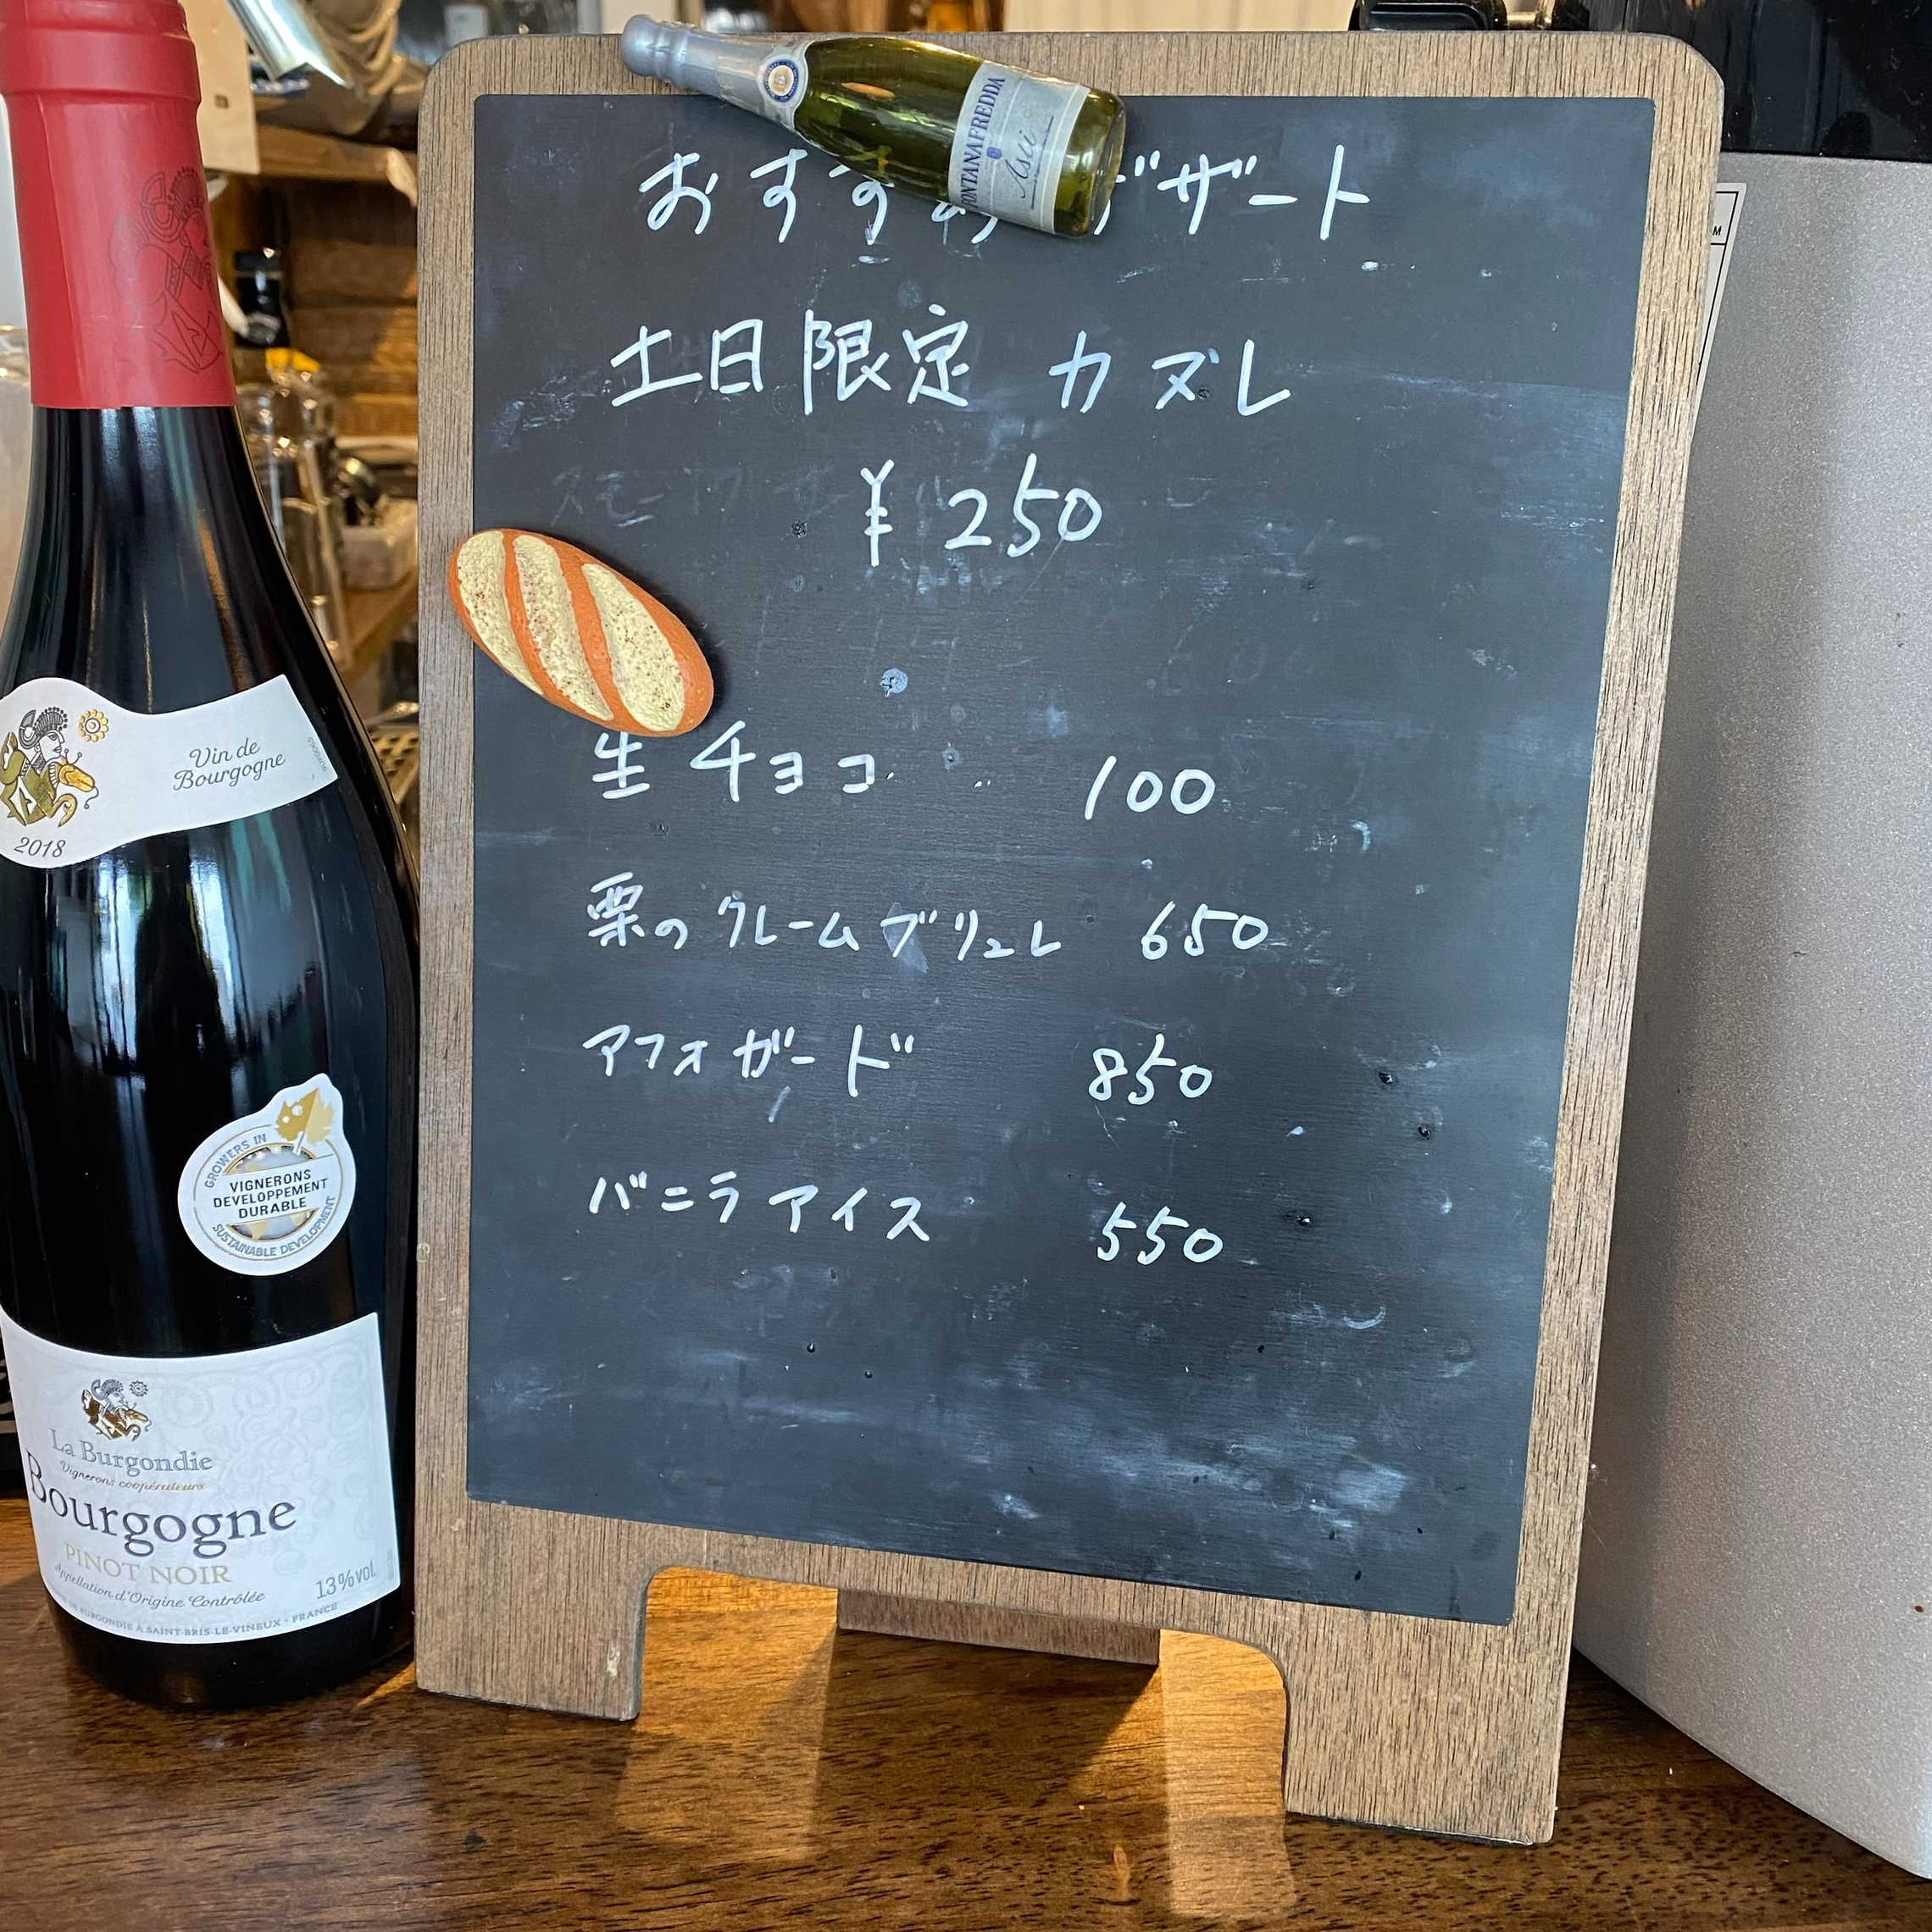 おすすめデザート
土日限定 カヌレ
¥250
生チョコ 100
栗のクレームブリュレ 650
アフォガード 850
バニラアイス 550
FONTANAFREDDA
Asti
Vin de
Bourgogne
2018
GROWERS IN
VIGNERONS
DEVELOPPEMENT
DURABLE
SUSTAINABLE DEVELOPMENT
La Burgondie
Vignerons coopérateurs
Bourgogne
PINOT NOIR
Appellation d'Origine Contrôlée
13%vol.
DE BURGONDIE À SAINT-BRIS-LE-VINEUX - FRANCE